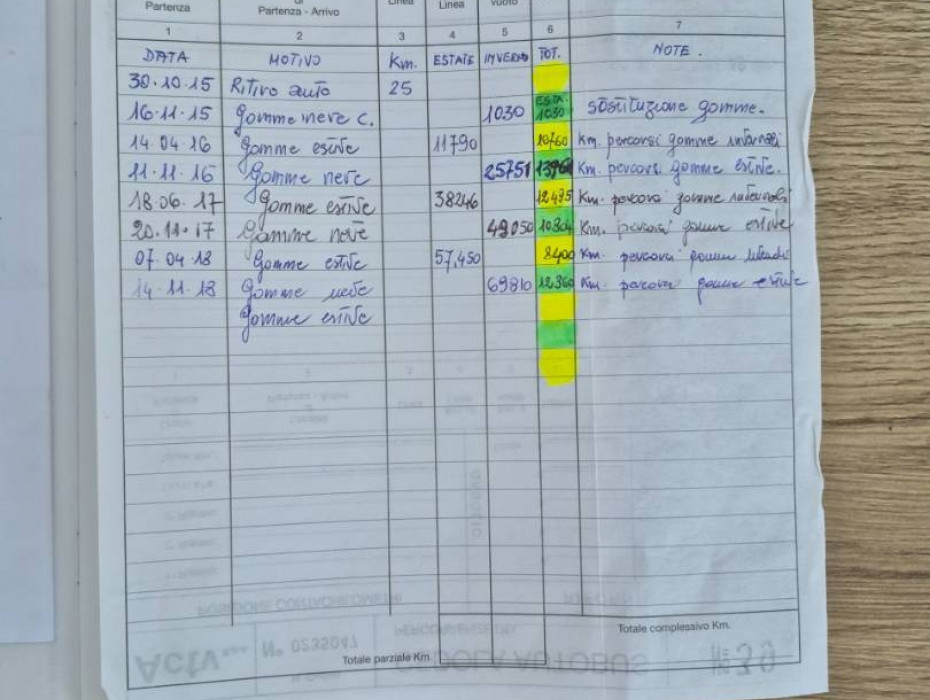 Partenza di Linea Linea vuoto
Partenza - Arrivo
1 2 3 4 5 6 7
DATA MOTIVO Km. ESTATE INVERNO TOT. NOTE.
30.10.15 Ritiro auto 25
16.11.15 Gomme neve c. 1030 ESTA. 1030 sostituzione gomme.
14.04.16 gomme estive 11790 10760 Km. percorsi gomme invernali
11.11.16 Gomme neve 25751 13961 Km. percorsi gomme estive.
18.06.17 Gomme estive 38246 12495 Km. percorsi gomme invernali
20.11.17 Gomme neve 49050 10804 Km. percorsi gomme estive
07.04.18 Gomme estive 57,450 8400 Km. percorsi gomme
14.11.18 Gomme neve 69810 12360 Km. percorsi gomme estive
Gomme estive
Totale complessivo Km.
Totale parziale Km.